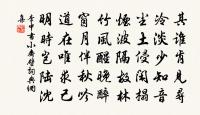 其誰肯見尋
冷淡少知音
塵土侵閑榻
煙波隔故林
竹風醒晚醉
窗月伴秋吟
道在唯求己
明時豈陸沈
李中書小齋壁詞典網
集